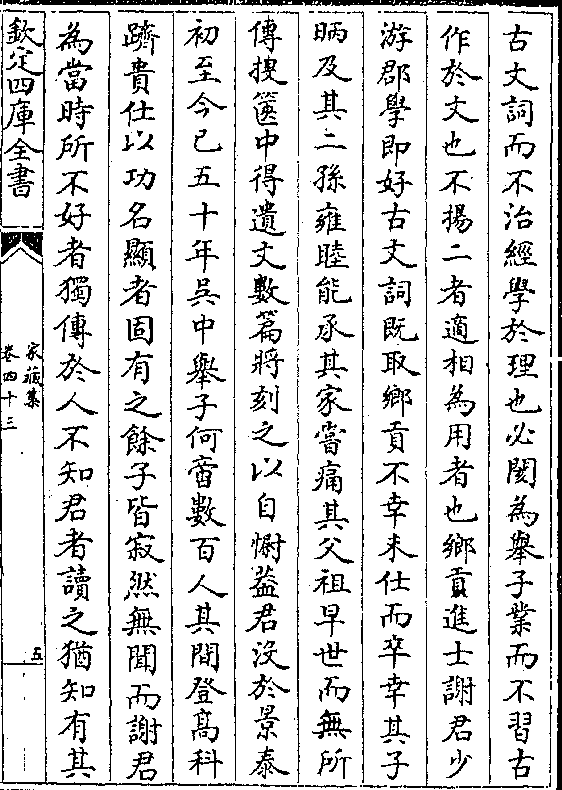 古文詞而不治經學於理也必闕為舉子業而不習古
作於文也不揚二者適相為用者也鄉貢進士謝君少
游郡學即好古文詞既取鄉貢不幸未仕而卒幸其子
昞及其二孫雍睦能承其家嘗痛其父祖早世而無所
傳搜篋中得遺文數篇將刻之以自慰葢君沒於景泰
初至今已五十年吳中舉子何啻數百人其間登髙科
躋貴仕以功名顯者固有之餘子皆寂然無聞而謝君
為當時所不好者獨傳於人不知君者讀之猶知有其
欽定四庫全書
家藏集
卷四十三
五